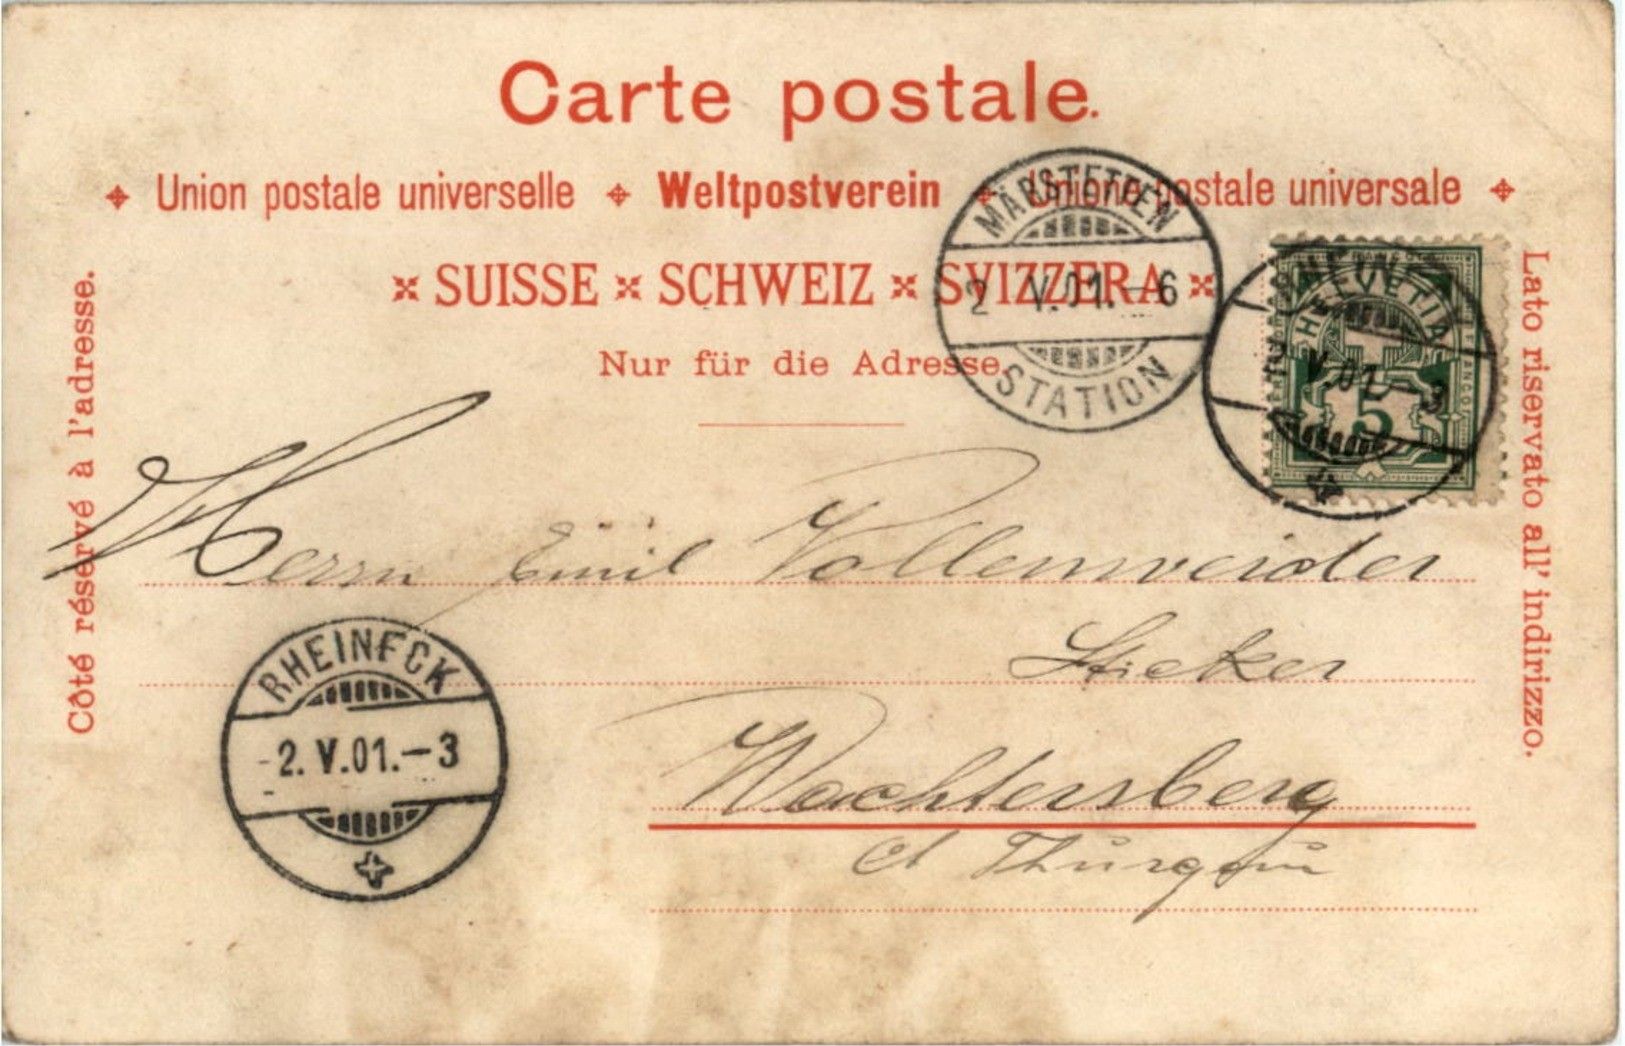 Carte postale.
Union postale universelle Weltpostverein Unione postale universale
SUISSE SCHWEIZ SVIZZERA
Nur für die Adresse.
Côté réservé à l'adresse.
Lato riservato all' indirizzo.
MÄRSTETTEN
2 V.01.-6
STATION
HELVETIA
V.01.-3
5
Herrn Emil Vollenweider
Sticker
RHEINECK
-2.V.01.-3
Wachtersberg
Ct Thurgau